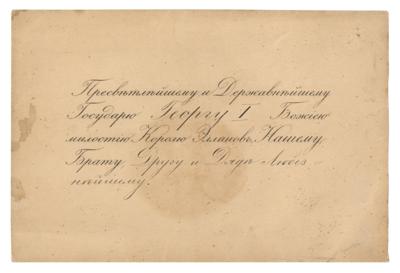 Пресвѣтлѣйшему и Державнѣйшему
Государю Георгу I Божіею
милостію Королю Эллиновъ, Нашему
Брату, Другу и Дядѣ Любез-
нѣйшему.